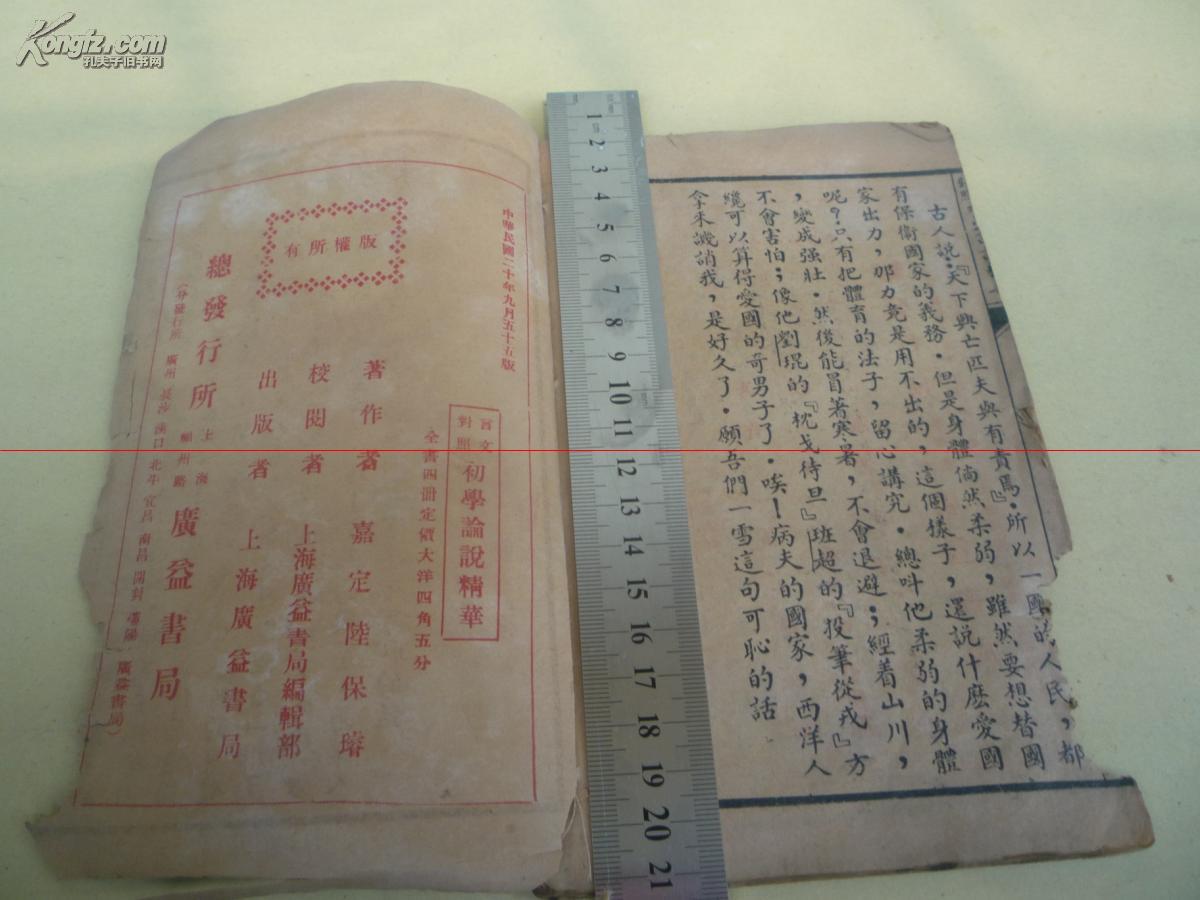 Kongfz.com
孔夫子旧书网
古人說『天下興亡匹夫與有責焉』。所以一國的人民，都
有保衞國家的義務。但是身體倘然柔弱，雖然要想替國
家出力，那力竟是用不出的，這個樣子，還說什麼愛國
呢？只有把體育的法子，留心講究。總叫他柔弱的身體
，變成强壯。然後能冒著寒暑，不會退避；經着山川，
不會害怕；像他劉琨的『枕戈待旦』班超的『投筆從戎』方
纔可以算得愛國的奇男子了。唉！病夫的國家，西洋人
拿來譏誚我，是好久了。願吾們一雪這句可恥的話
中華民國二十年九月五十五版
言文
對照
初學論說精華
全書四册定價大洋四角五分
版權所有
著作者 嘉定陸保璿
校閱者 上海廣益書局編輯部
出版者 上海廣益書局
總發行所 上海 廣益書局
分發行所 廣州 長沙 漢口 北平 宜昌 南昌 開封 廣益書局
1 2 3 4 5 6 7 8 9 10 11 12 13 14 15 16 17 18 19 20 21